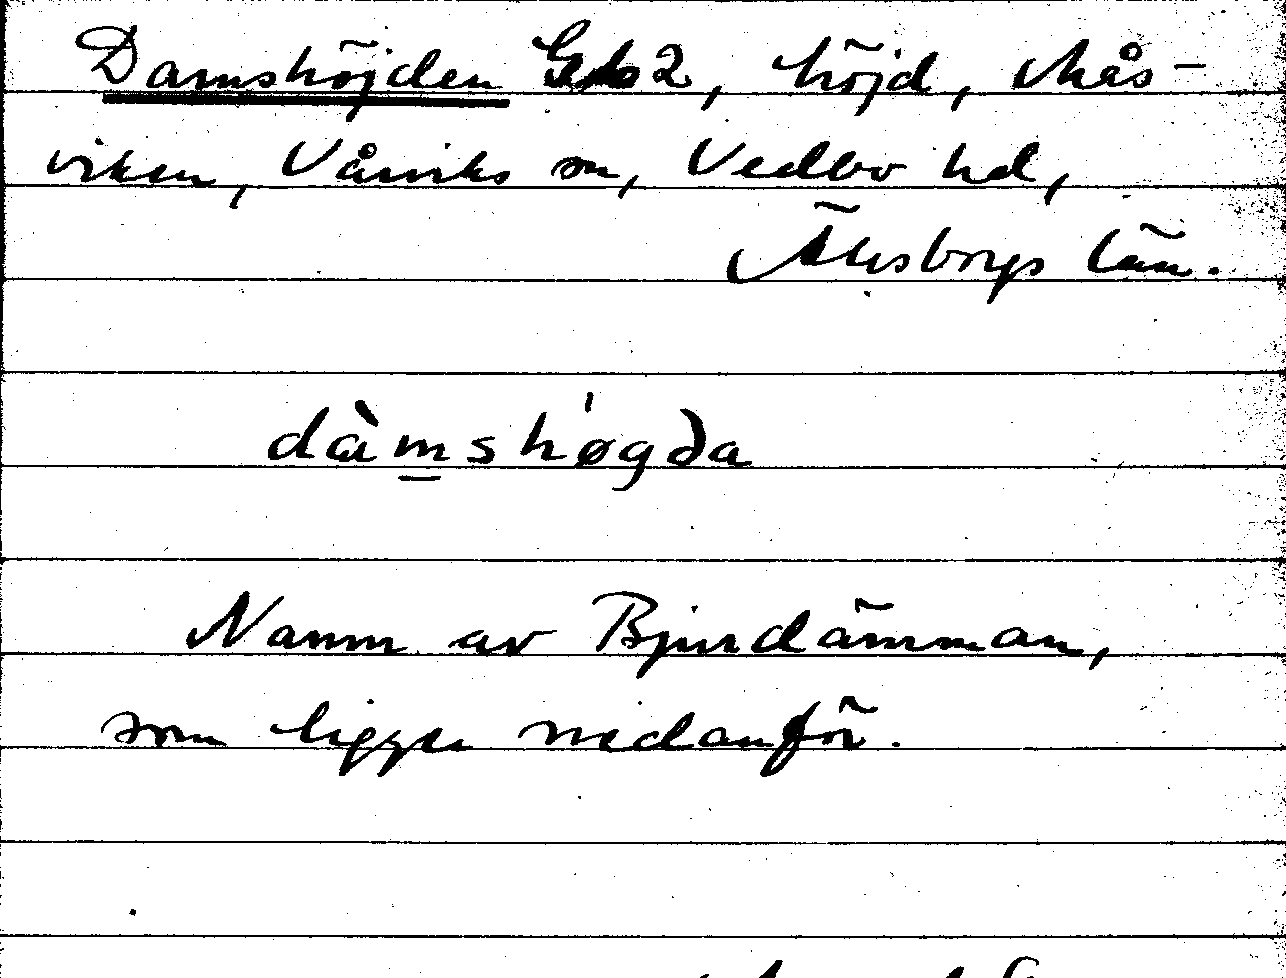 Damshöjden Gb2, höjd, Mås-
viken, Vårviks sn, Vedbo hd,
Älvsborgs län.
dàmshø̍gda
Namn av Bjurdämman,
som ligger nedanför.